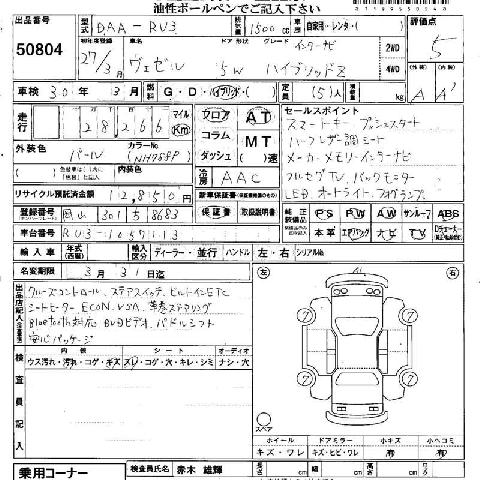 油性ボールペンでご記入下さい
出品番号 型式 DAA-RU3 排気量 1500cc 自家用・レンタ・( ) 評価点
50804 初年度登録 27/3月 車名 ヴェゼル ドア 形状 5W グレード インターナビ ハイブリッドZ 2WD 4WD 5
車検 30年 3月 燃料 G・D・ハイブリッド 定員 (5)人 積載量 kg (外装) A (内装) A
走行 28266 マイル Km フロア AT セールスポイント
外装色 パール カラーNo. (NH788P) コラム MT スマートキー プッシュスタート
色替 ダッシュ ( )速 ハーフレザー調シート
冷房 AAC メーカーメモリーインターナビ
リサイクル預託済金額 12,850円 新車保証書 フルセグTV、バックモニター
登録番号 岡山 301 5 8683 保証書 取扱説明書 LED、オートライト、フォグランプ
車台番号 RU3-1057113 純正装備品 PS PW AW サンルーフ ABS
本革 エアバッグ ナビ TV
輸入車 年式 輸入区分 ディーラー・並行 ハンドル 左・右 シリアルNo.
名変期限 3月 31日迄
出品店記入 クルーズコントロール、ステアスイッチ、ビルトインETC
シートヒーター、ECON、VSA、革巻ステアリング
Bluetooth対応、DVDビデオ、パドルシフト
安心パッケージ
左 右
検査員記入 内張 シート オーディオ
ウス汚れ・汚れ・コゲ・キズ スレ・コゲ・穴・キレ・シミ ナシ・穴
スペア
ホイール ドアミラー 小キズ 小ヘコミ
キズ・ワレ キズ・ヒビ・ワレ 有 有
乗用コーナー 検査員氏名 赤木 雄輝 長さ cm 幅 cm 高さ cm